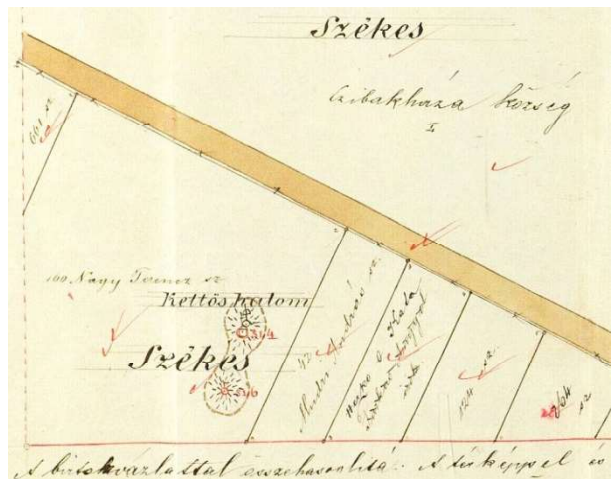 Székes
Czibakháza község
I
661 sz
160 Nagy Ferencz sz
Kettőshalom
364
Székes
42
András sz.
Kata
124 sz.
264 sz
A birtokvázlattal összehasonlitá. A térképpel és